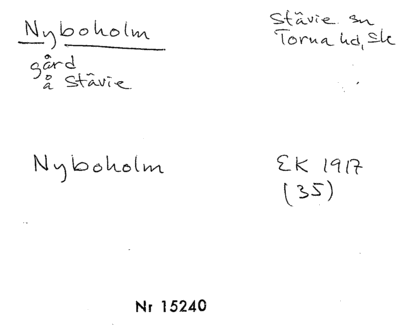 Nyboholm
Stävie sn
Torna hd, Sk
gård
å Stävie
Nyboholm
EK 1917
(35)
Nr 15240